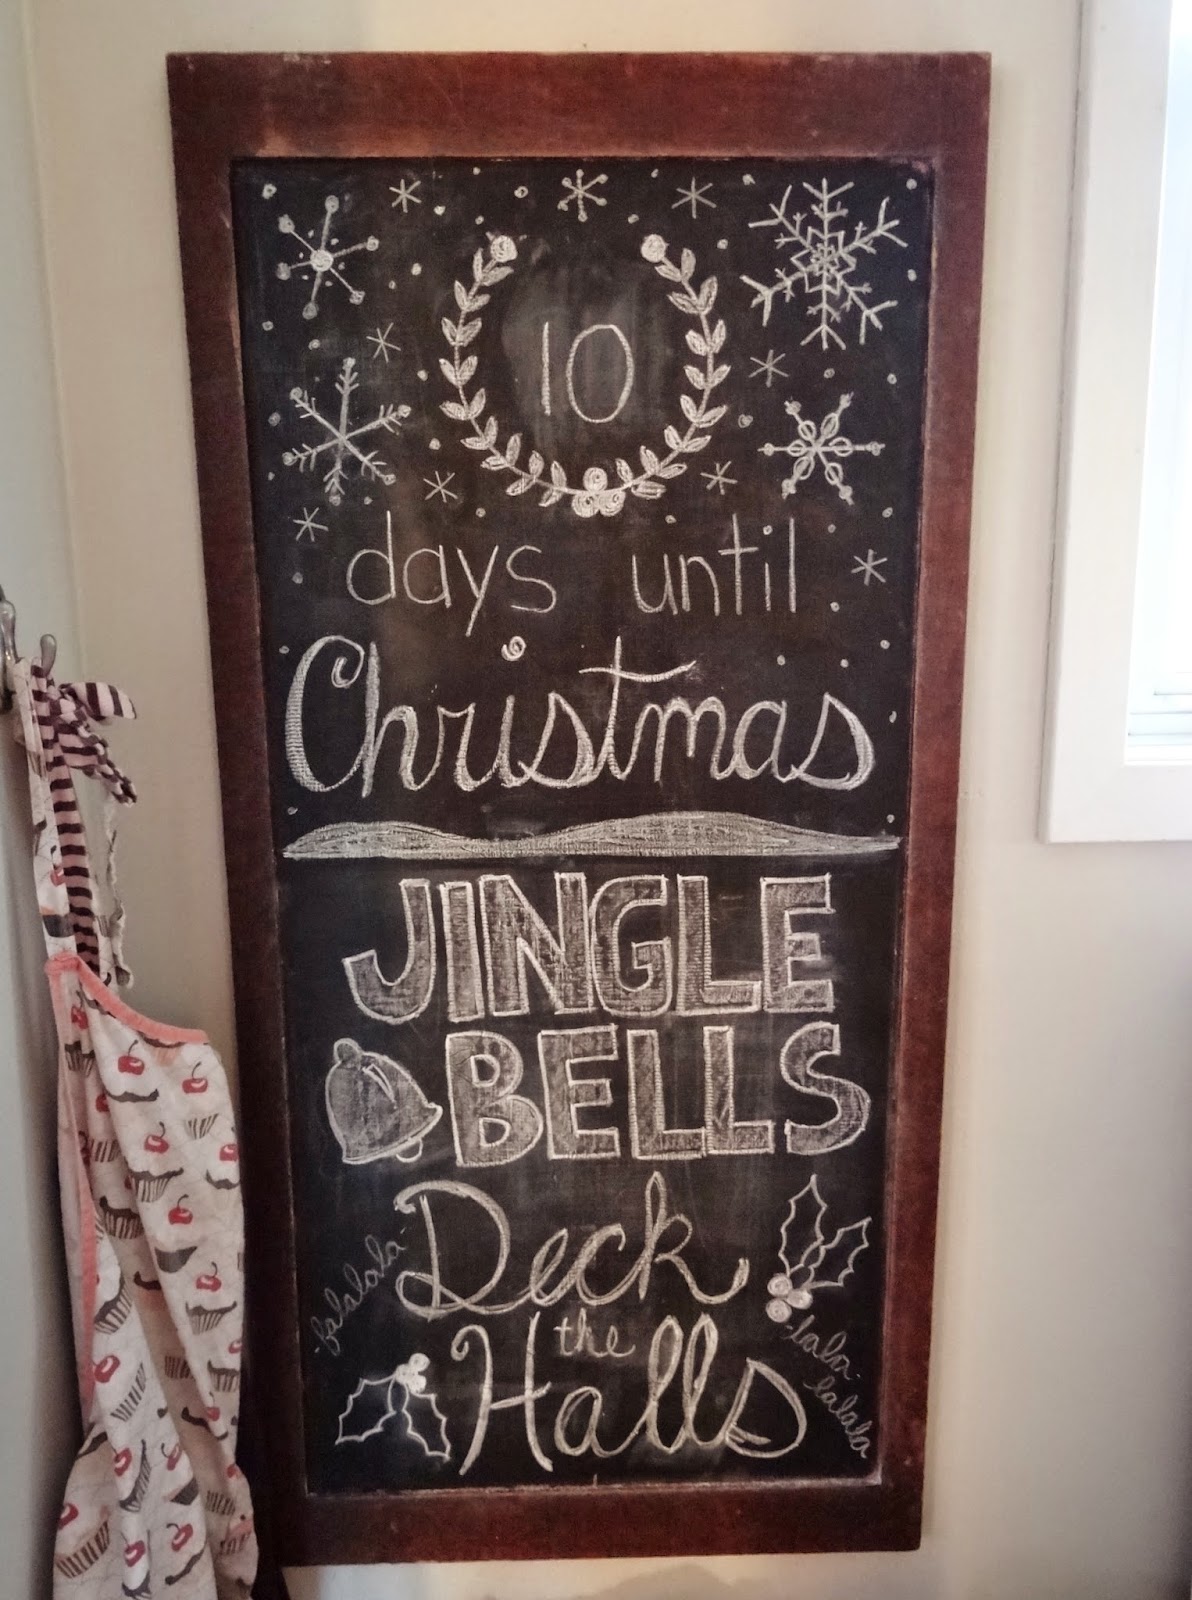 10
days until
Christmas
JINGLE
BELLS
Deck
-falalala-
the
Halls
-lala-
lalala